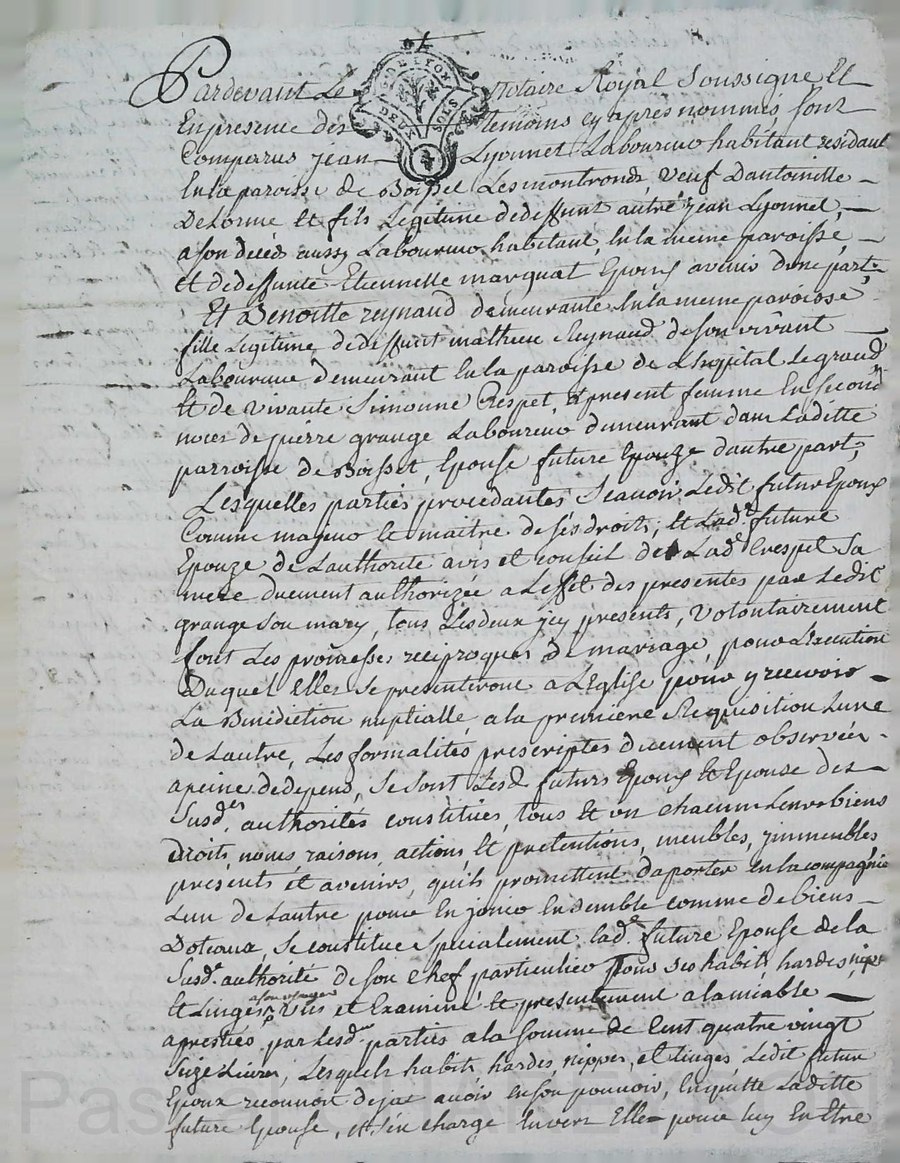 Pardevant Le Notaire Royal Soussigné Et
En presence des temoins cy apres nommés, sont
Comparus jean Lyonnet Laboureur habitant residant
En la paroisse de Boisset Lesmontrond, veuf Dantoinette
Delorme et fils Legitime dedeffunt autre jean Lyonnet,
a son deced aussy Laboureur habitant, En la meme paroisse,
et dedeffunte Etiennette marquat Epoux avenir dune part;
Et Benoitte reynaud demeurante En la meme paroisse
fille Legitime dedeffunt mathieu Reynaud de son vivant
Laboureur demeurant En la paroisse de Lhopital Legrand,
Et de vivante Simonne Crespet, et present femme En second
noces de pierre grange Laboureur demeurant dans Laditte
parroisse de Boisset, Epouse future Epouze dautre part;
Lesquelles parties procedantes, Scavoir Ledit futur Epoux
Comme majeur et maitre de ses droits; et Lad.e future
Epouze de Lauthorité avis et conseil de Lad.e Crespet Sa
mere duement authorizée a Leffet des presentes par Ledit
grange son mary, tous Lesdeux jcy presents, volontairement
font Les promesses reciproques de mariage, pour Lexecution
Duquel Elles se presenteront a LEglise pour y recevoir
La Benediction nuptialle, a la premiere Requisition Lune
de Lautre, Les formalités prescriptes duement observées
a peine de depens, Se sont Lesd. futurs Epoux et Epouse des
Susd.es authorités constitués, tous et un chacun Leurs biens
Droits, noms, raisons, actions, et pretentions, meubles, jmmeubles
presents et avenirs, quils promettent daporter en la compagnie
Lun de Lautre pour En jouir Ensemble comme de biens
Doteaux, Se constitue specialement Lad.e future Epouse de la
Susd.e authorité de son Chef particulier tous ses habits, hardes, nipes
a son usage
Et Linges, vus et Examiné Et presentement a lamiable
apretiés par Lesd.es parties a la somme de Cent quatre vingt
Seize Livres, Lesquels habits hardes, nippes, et Linges Ledit futur
Epoux reconnoit deja avoir en son pouvoir, Enquitte Laditte
future Epouse, et s'en charge Envers Elle pour luy En Etre
MARC D DE LYON
SOLS
Pas